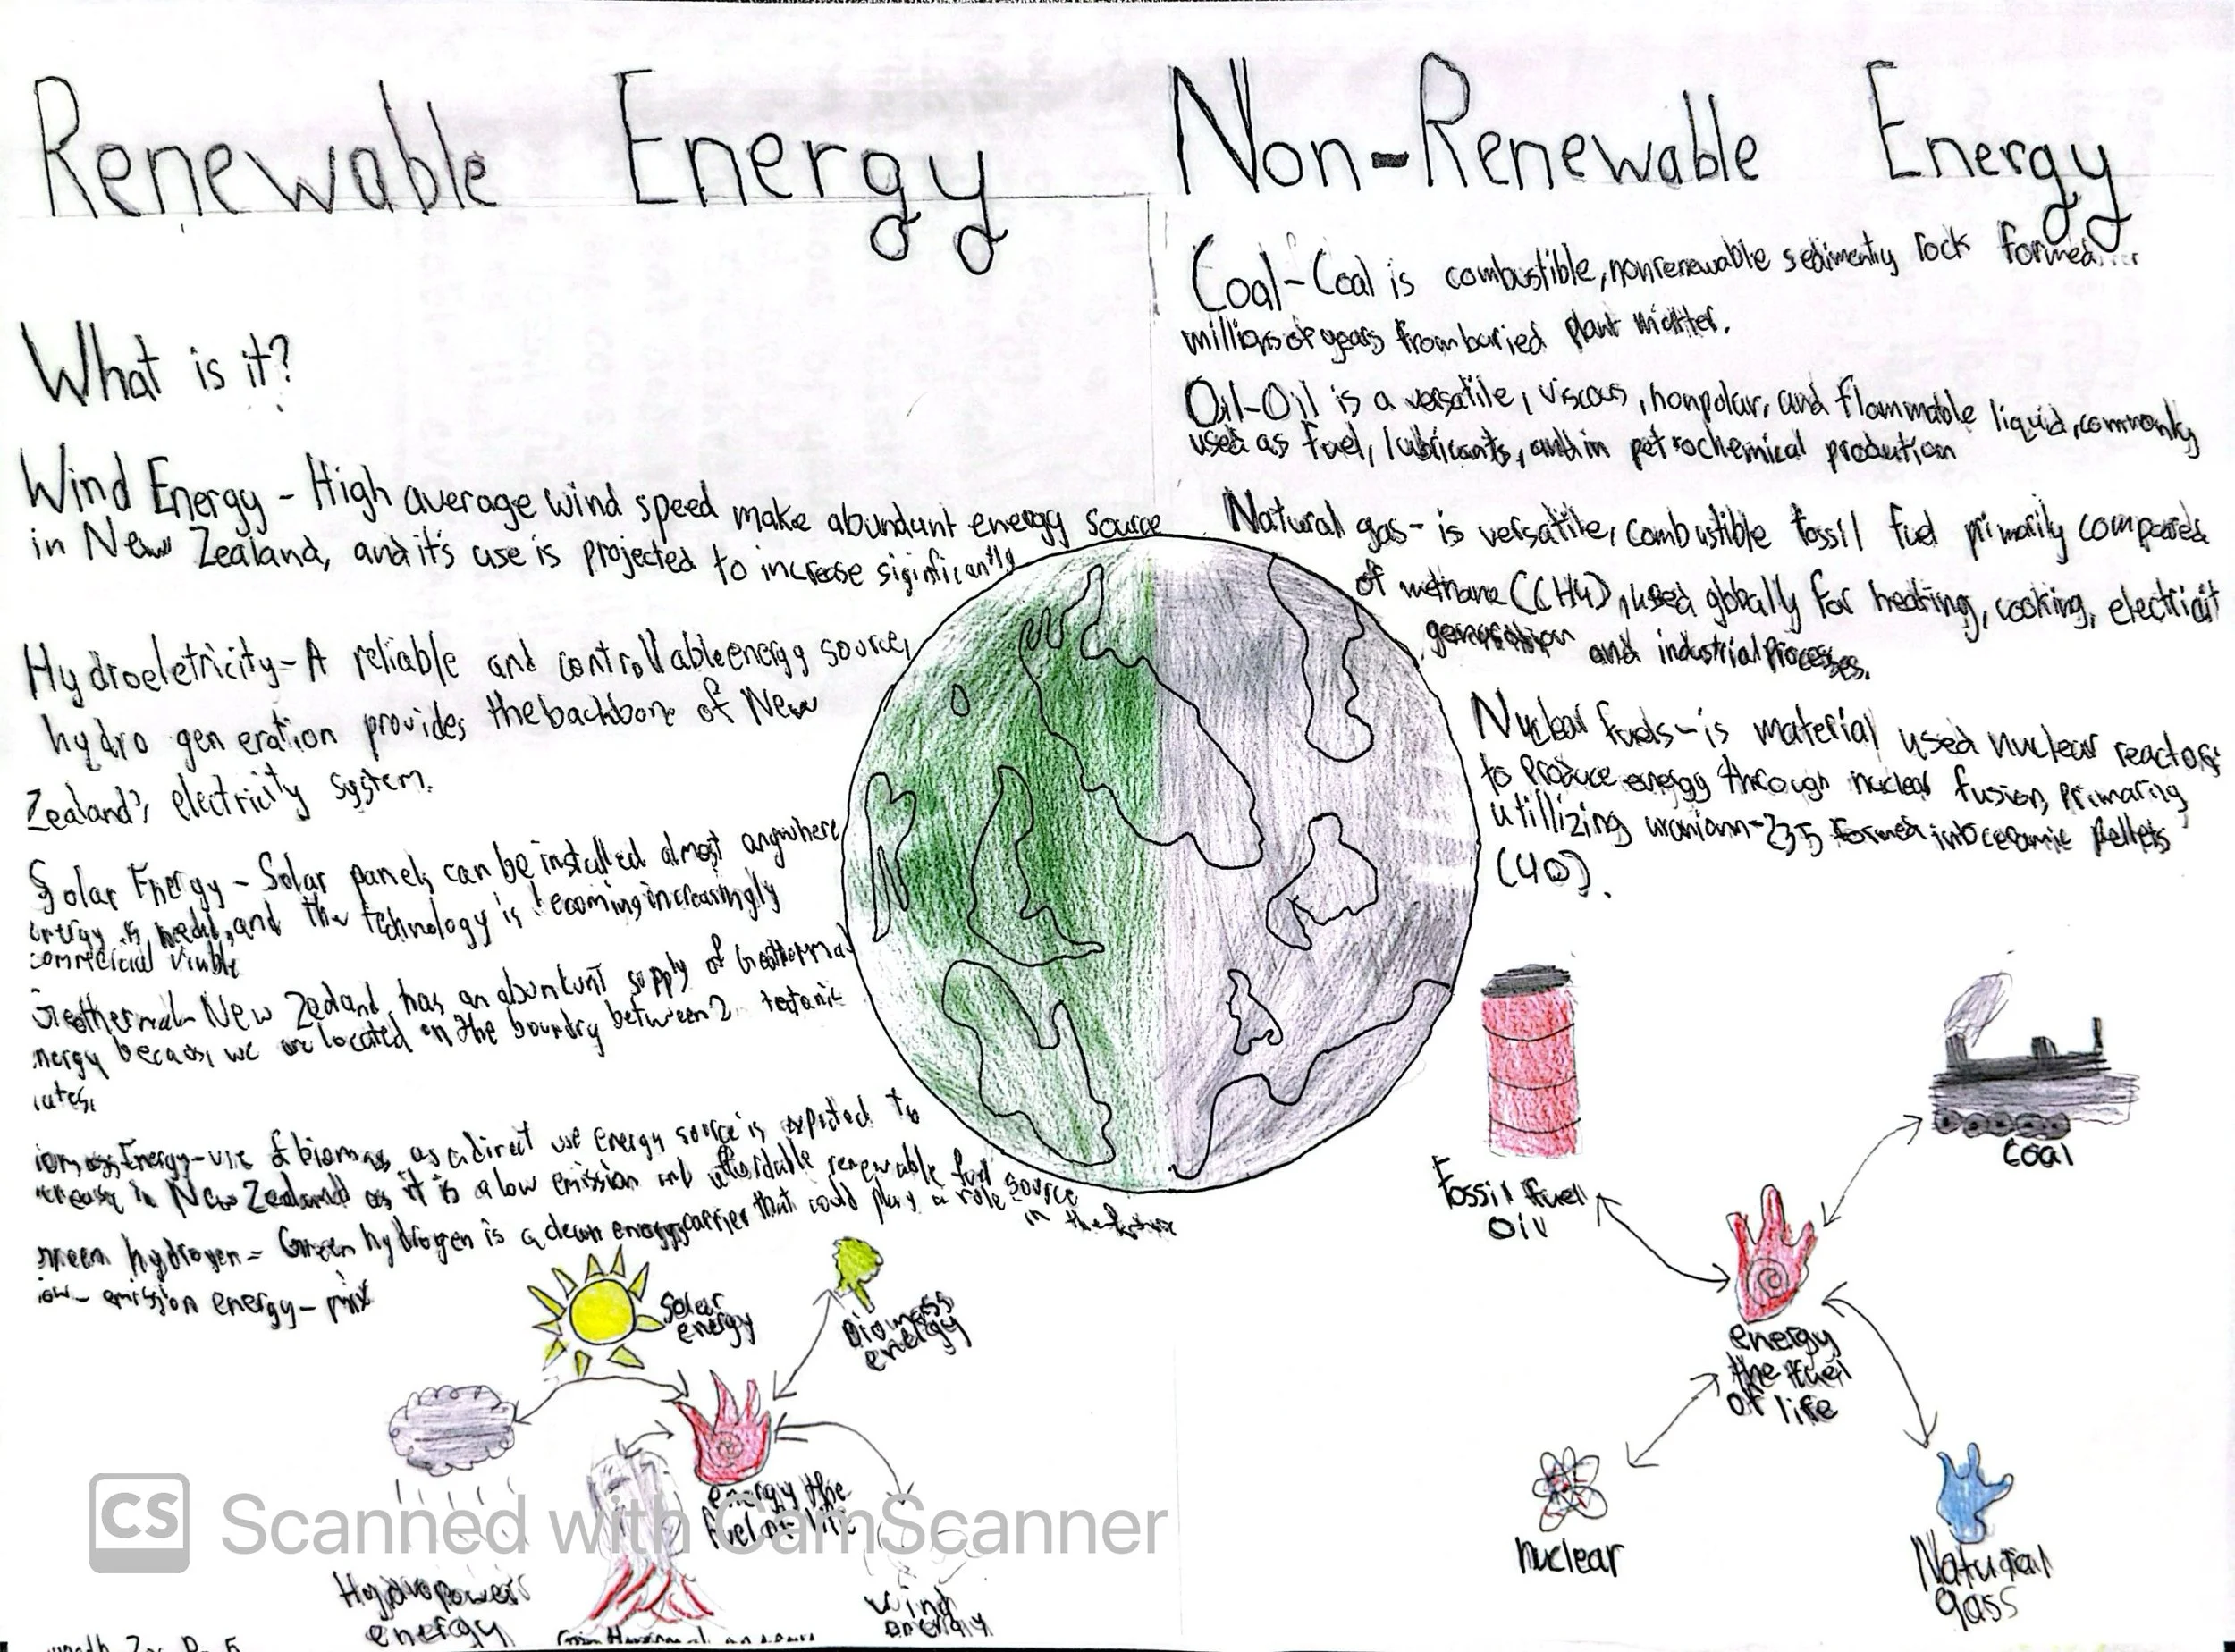 Renewable Energy
What is it?
Wind Energy - High average wind speed make abundant energy source
in New Zealand, and it's use is projected to increase siginficantly
Hydroeletricity- A reliable and controllable energy source,
hydro generation provides the backbone of New
Zealand's electricity system.
Solar Energy - Solar panels can be installed almost anywhere
energy is needed, and the technology is becoming increasingly
commercial viable
Geothermal- New Zealand has an abundunt supply of Geothermal
energy because we are located on the boundry between 2 tectonic
Energy-use of biomass as a direct use energy source is expected to
in New Zealand as it is a low emission and affordable renewable fuel source
hydrogen= Green hydrogen is a clean energy carrier that could play a role in the future
low- emission energy- mix
Solar
energy
Biomass
energy
energy the
fuel of life
Hydropower
energy
Wind
energy
Non-Renewable Energy
Coal-Coal is combustible, nonrenewable sedimentiy rock formed
millions of years from buried plant matter.
Oil-Oil is a versatile, viscous, nonpolar, and flammable liquid, commonly
used as fuel, lubricants, and in petrochemical prodution
Natural gas- is versatile, combustible fossil fuel primarily compored
of methane (CH4), used globally for heating, cooking, electricit
generation and industrial Processes.
Nuclear fuels-is material used nuclear reactors
to produce energy through nuclear fusion, primaring
utillizing uraniann-235 formed into ceramic pellets
(UO).
Fossil fuel
Oil
Coal
energy
the fuel
of life
nuclear
Natural
gass
CS Scanned with CamScanner